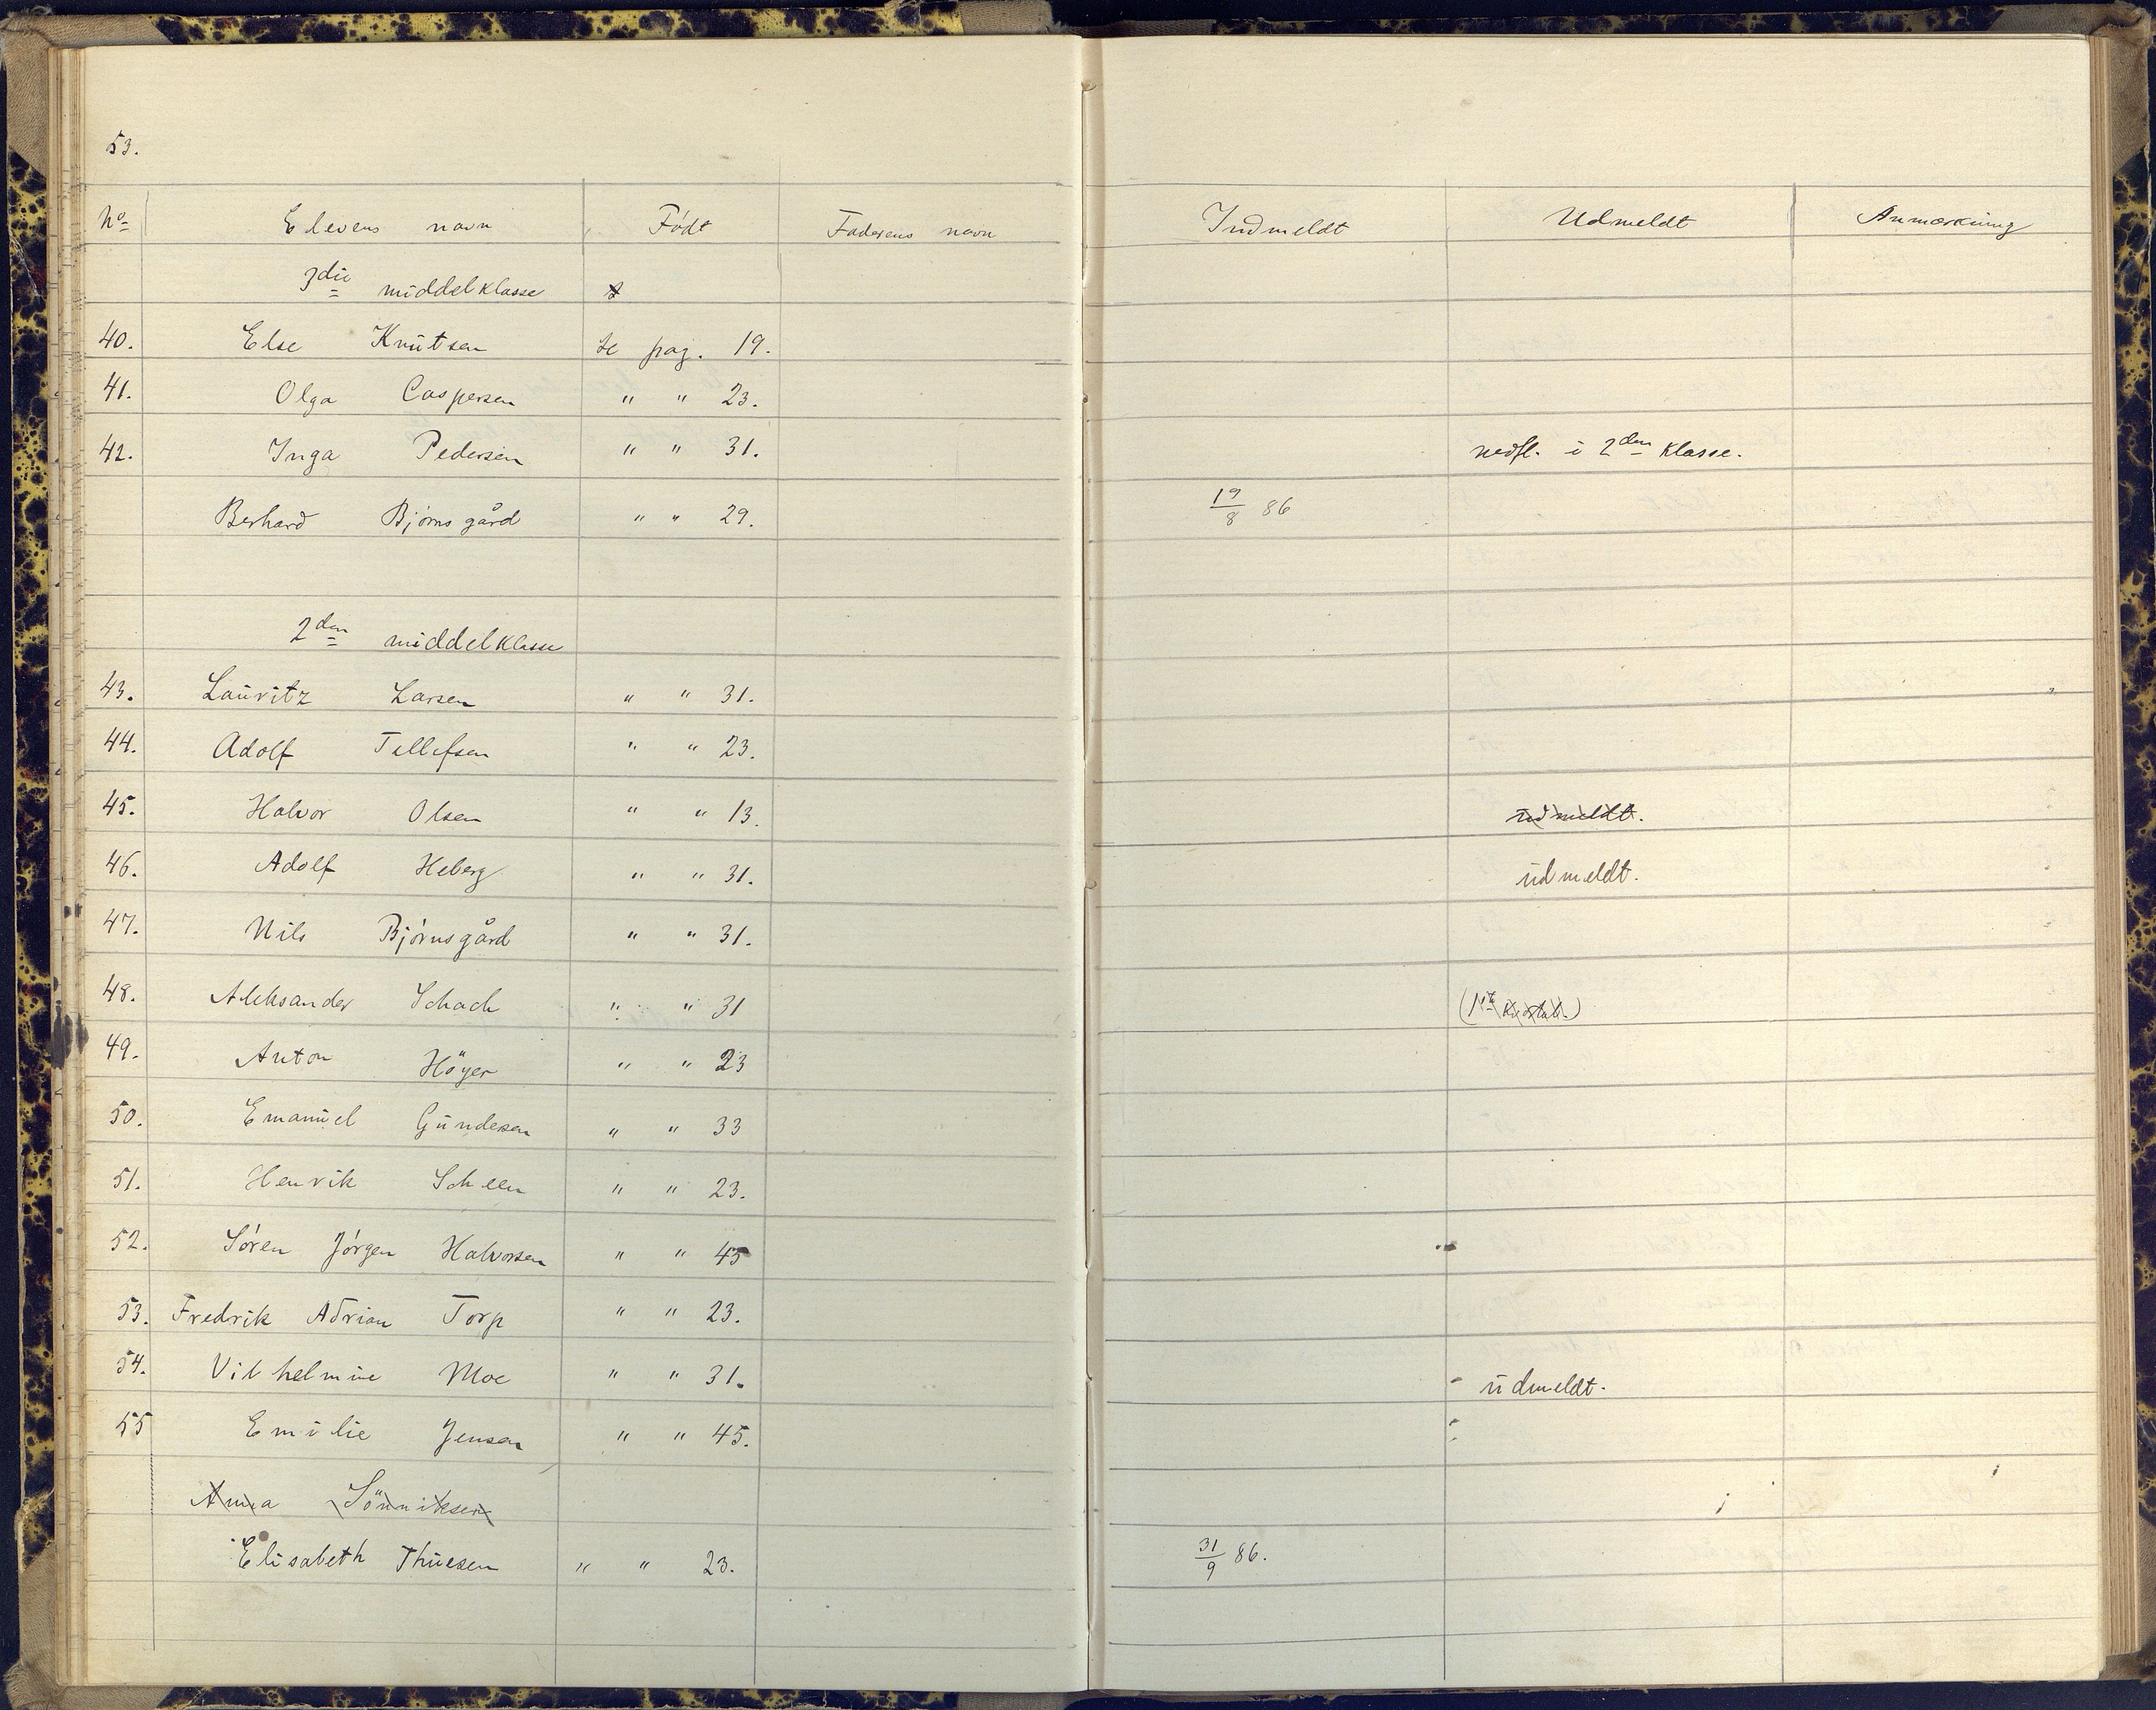 53.
No Elevens navn Født Faderens navn Indmeldt Udmeldt Anmærkning
3die middelklasse
40. Else Knutsen se pag. 19.
41. Olga Caspersen " " 23.
42. Inga Pedersen " " 31. nedfl. i 2den klasse.
Berhard Bjørnsgård " " 29. 19/8 86
2den middelklasse
43. Lauritz Larsen " " 31.
44. Adolf Tellefsen " " 23.
45. Halvor Olsen " " 13. udmeldt.
46. Adolf Heberg " " 31. udmeldt.
47. Nils Bjørnsgård " " 31.
48. Aleksander Schach " " 31 (1ste
49. Anton Höyer " " 23
50. Emanuel Gundersen " " 33
51. Henrik Scheen " " 23.
52. Sören Jörgen Halvorsen " " 45
53. Fredrik Adrian Torp " " 23.
54. Vilhelmine Moe " " 31. udmeldt.
55 Emilie Jensen " " 45.
Anna Sönniksen
Elisabeth Thuesen " " 23. 31/9 86.